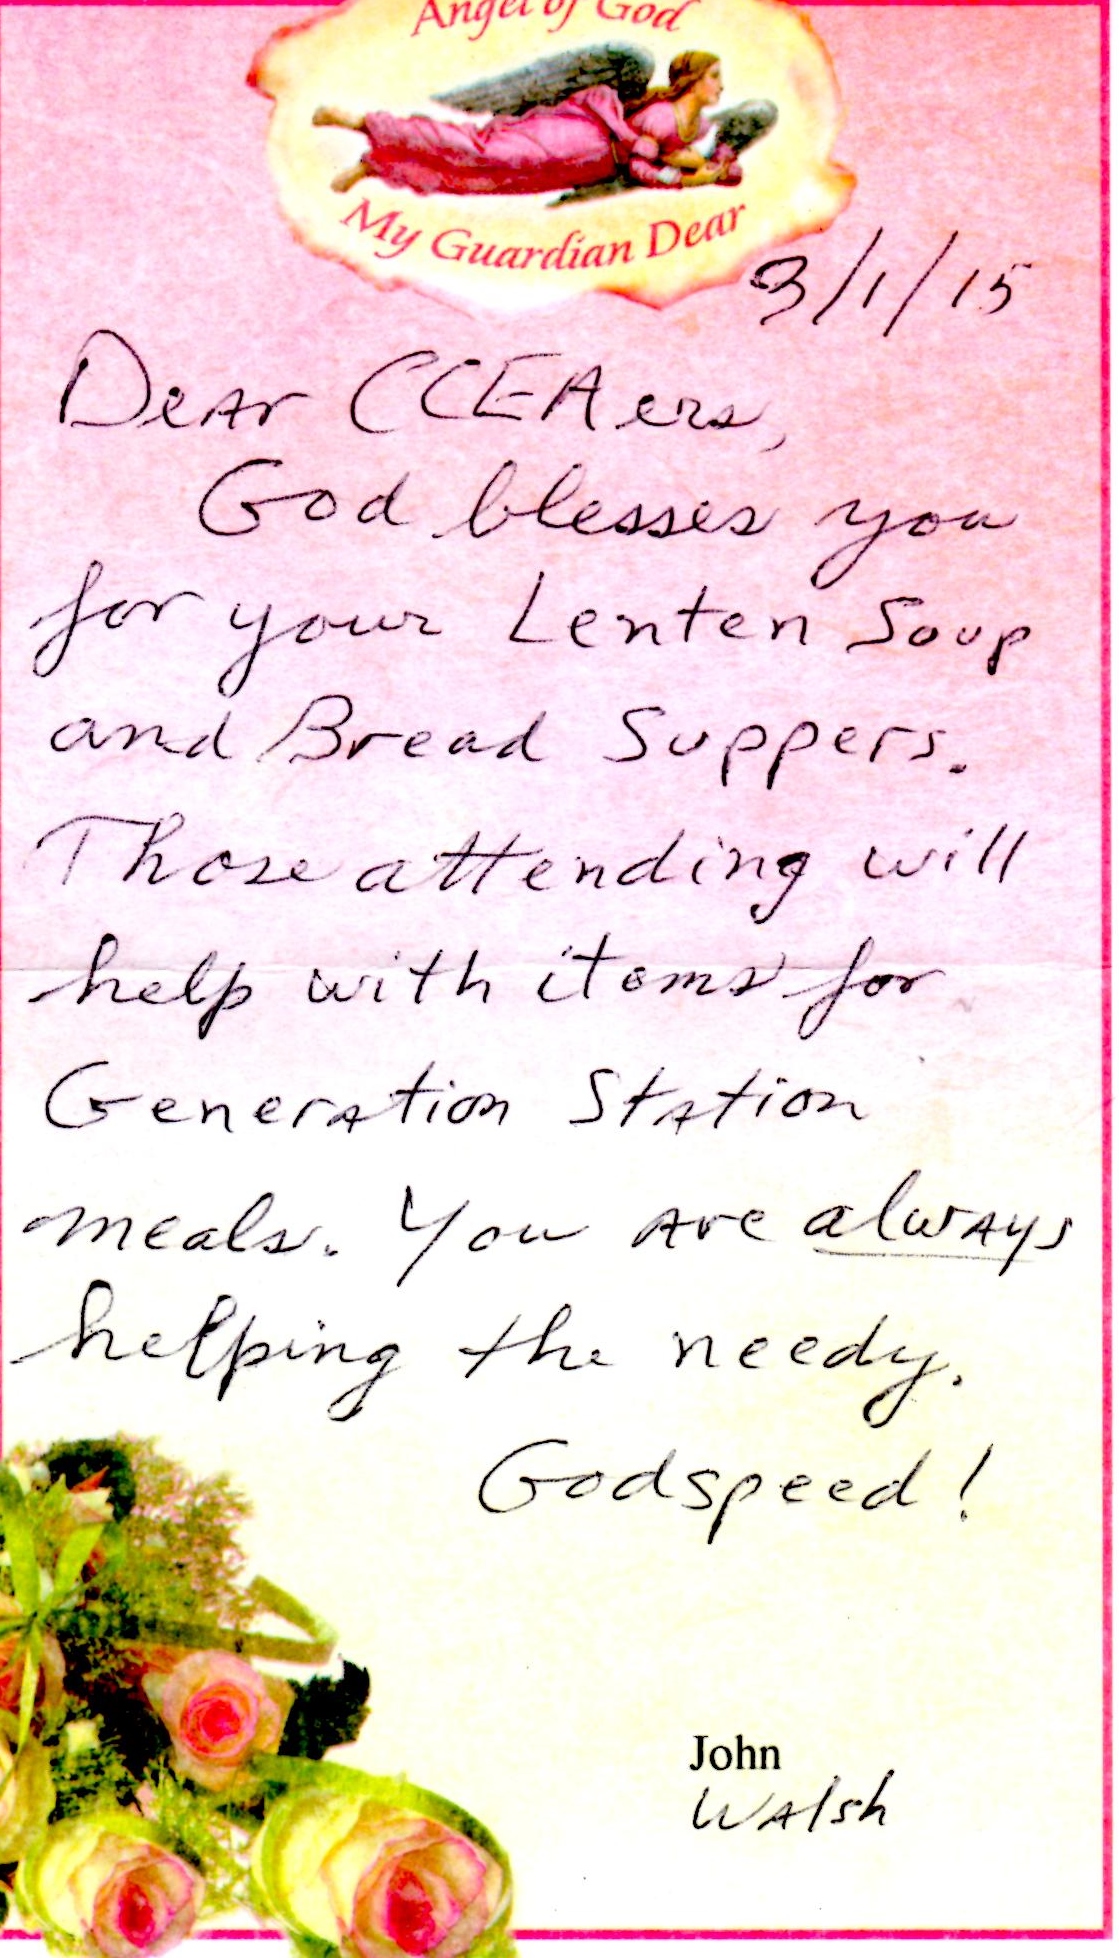 Angel of God
My Guardian Dear
3/1/15
Dear CCEAers,
God blesses you
for your Lenten Soup
and Bread Suppers.
Those attending will
help with items for
Generation Station
meals. You are always
helping the needy.
Godspeed!
John
Walsh